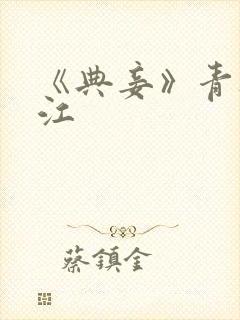 《典妾》青
江
蔡鎮金